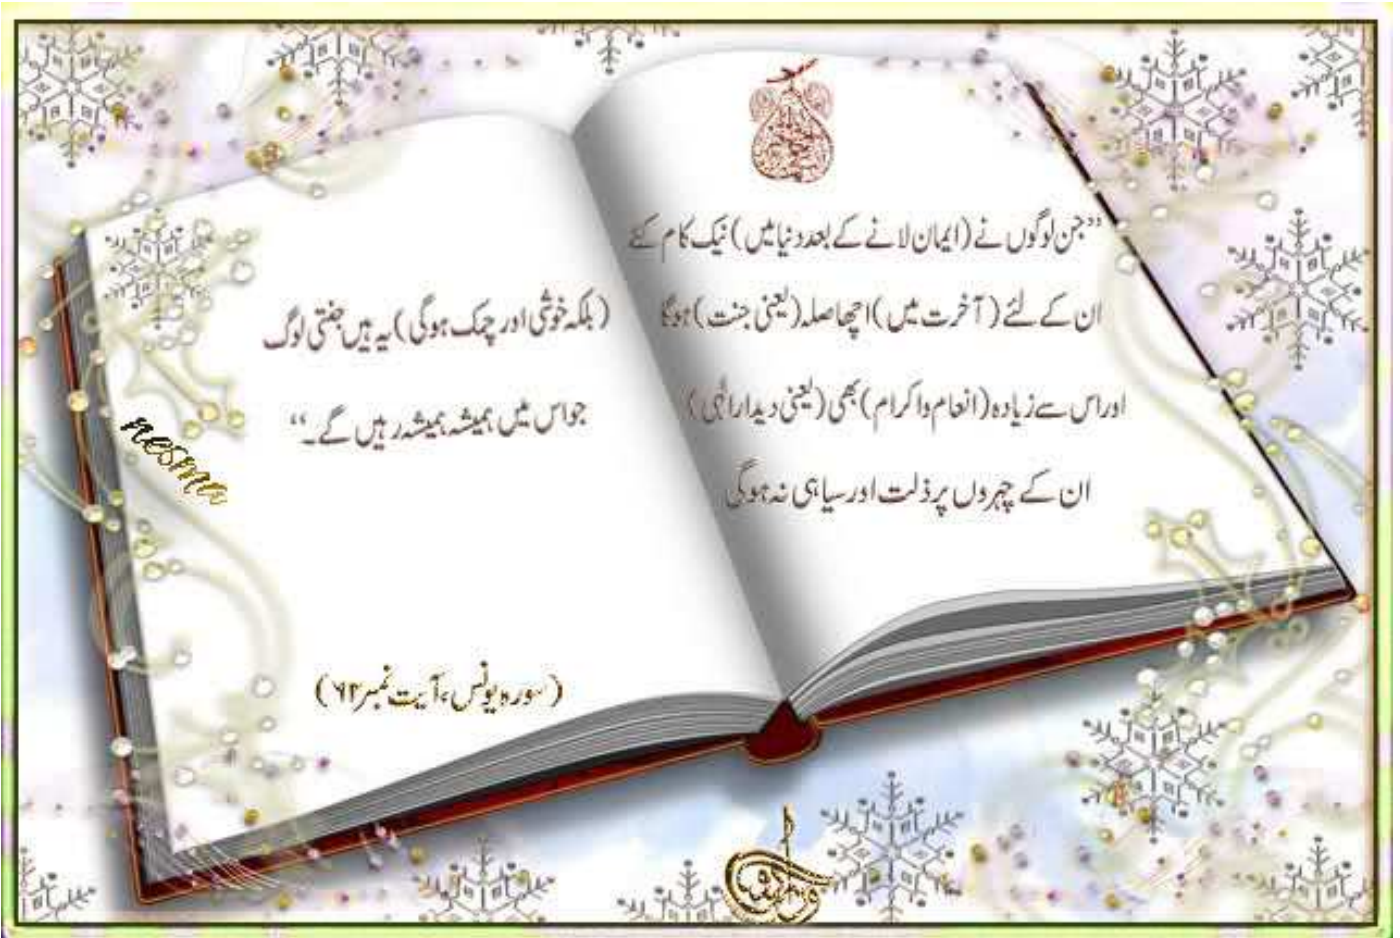 ”جن لوگوں نے (ایمان لانے کے بعد دنیا میں) نیک کام کئے
ان کے لئے (آخرت میں) اچھا صلہ (یعنی جنت) ہوگا
اور اس سے زیادہ (انعام و اکرام) بھی (یعنی دیدار الٰہی)
ان کے چہروں پر ذلت اور سیاہی نہ ہوگی
(بلکہ خوشی اور چمک ہوگی) یہ ہیں جنتی لوگ
جو اس میں ہمیشہ ہمیشہ رہیں گے۔“
nesma
(سورہ یونس، آیت نمبر ۶۲)